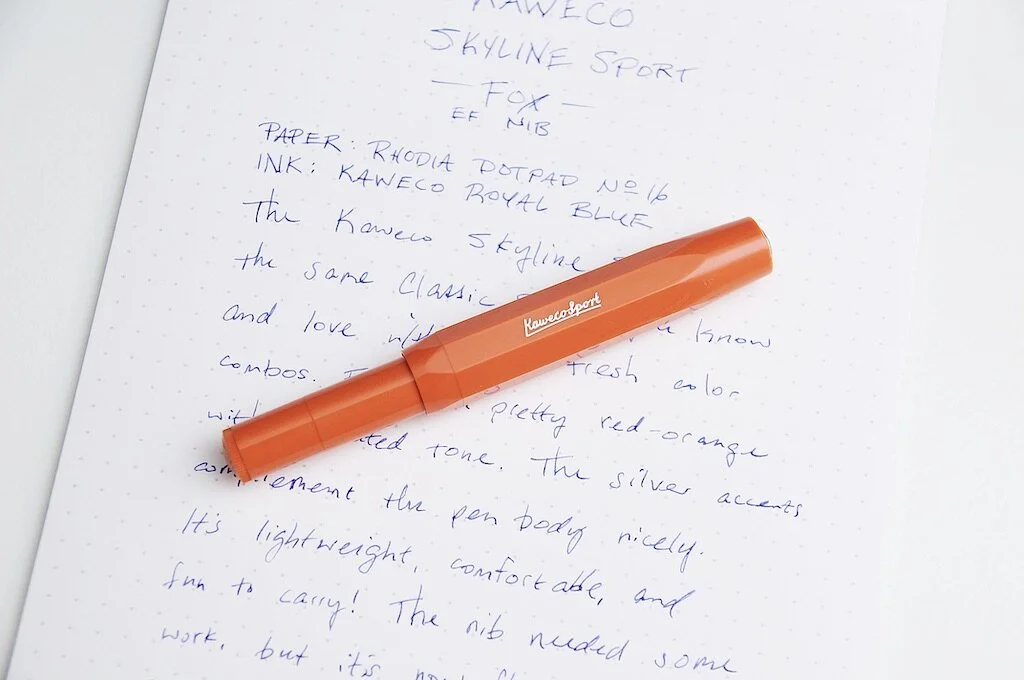 KAWECO
SKYLINE SPORT
— FOX —
EF NIB
PAPER: RHODIA DOTPAD Nº 16
INK: KAWECO ROYAL BLUE
The Kaweco Skyline
the same Classic
and love know
combos. fresh color
pretty red-orange
tone. The silver accents
complement the pen body nicely.
It's lightweight, comfortable, and
fun to carry! The nib needed some
work, but it's
KawecoSport